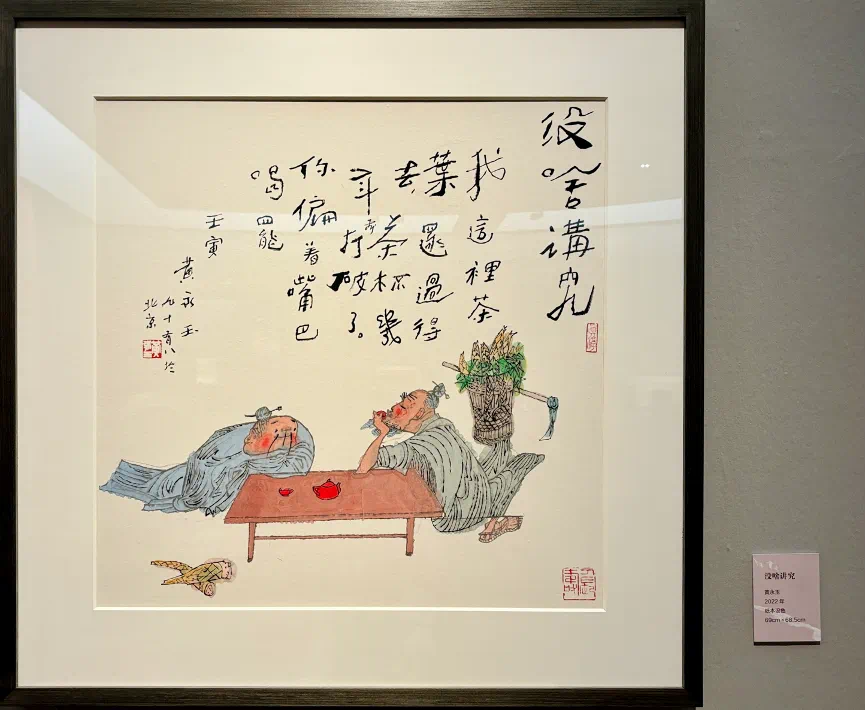 沒啥講究
我這裡茶
葉還過得
去茶杯幾
年前打破了。
你偏着嘴巴
喝罷
壬寅
黃永玉
九十有八於
北京
没啥讲究
黄永玉
2022年
纸本设色
69cm×68.5cm